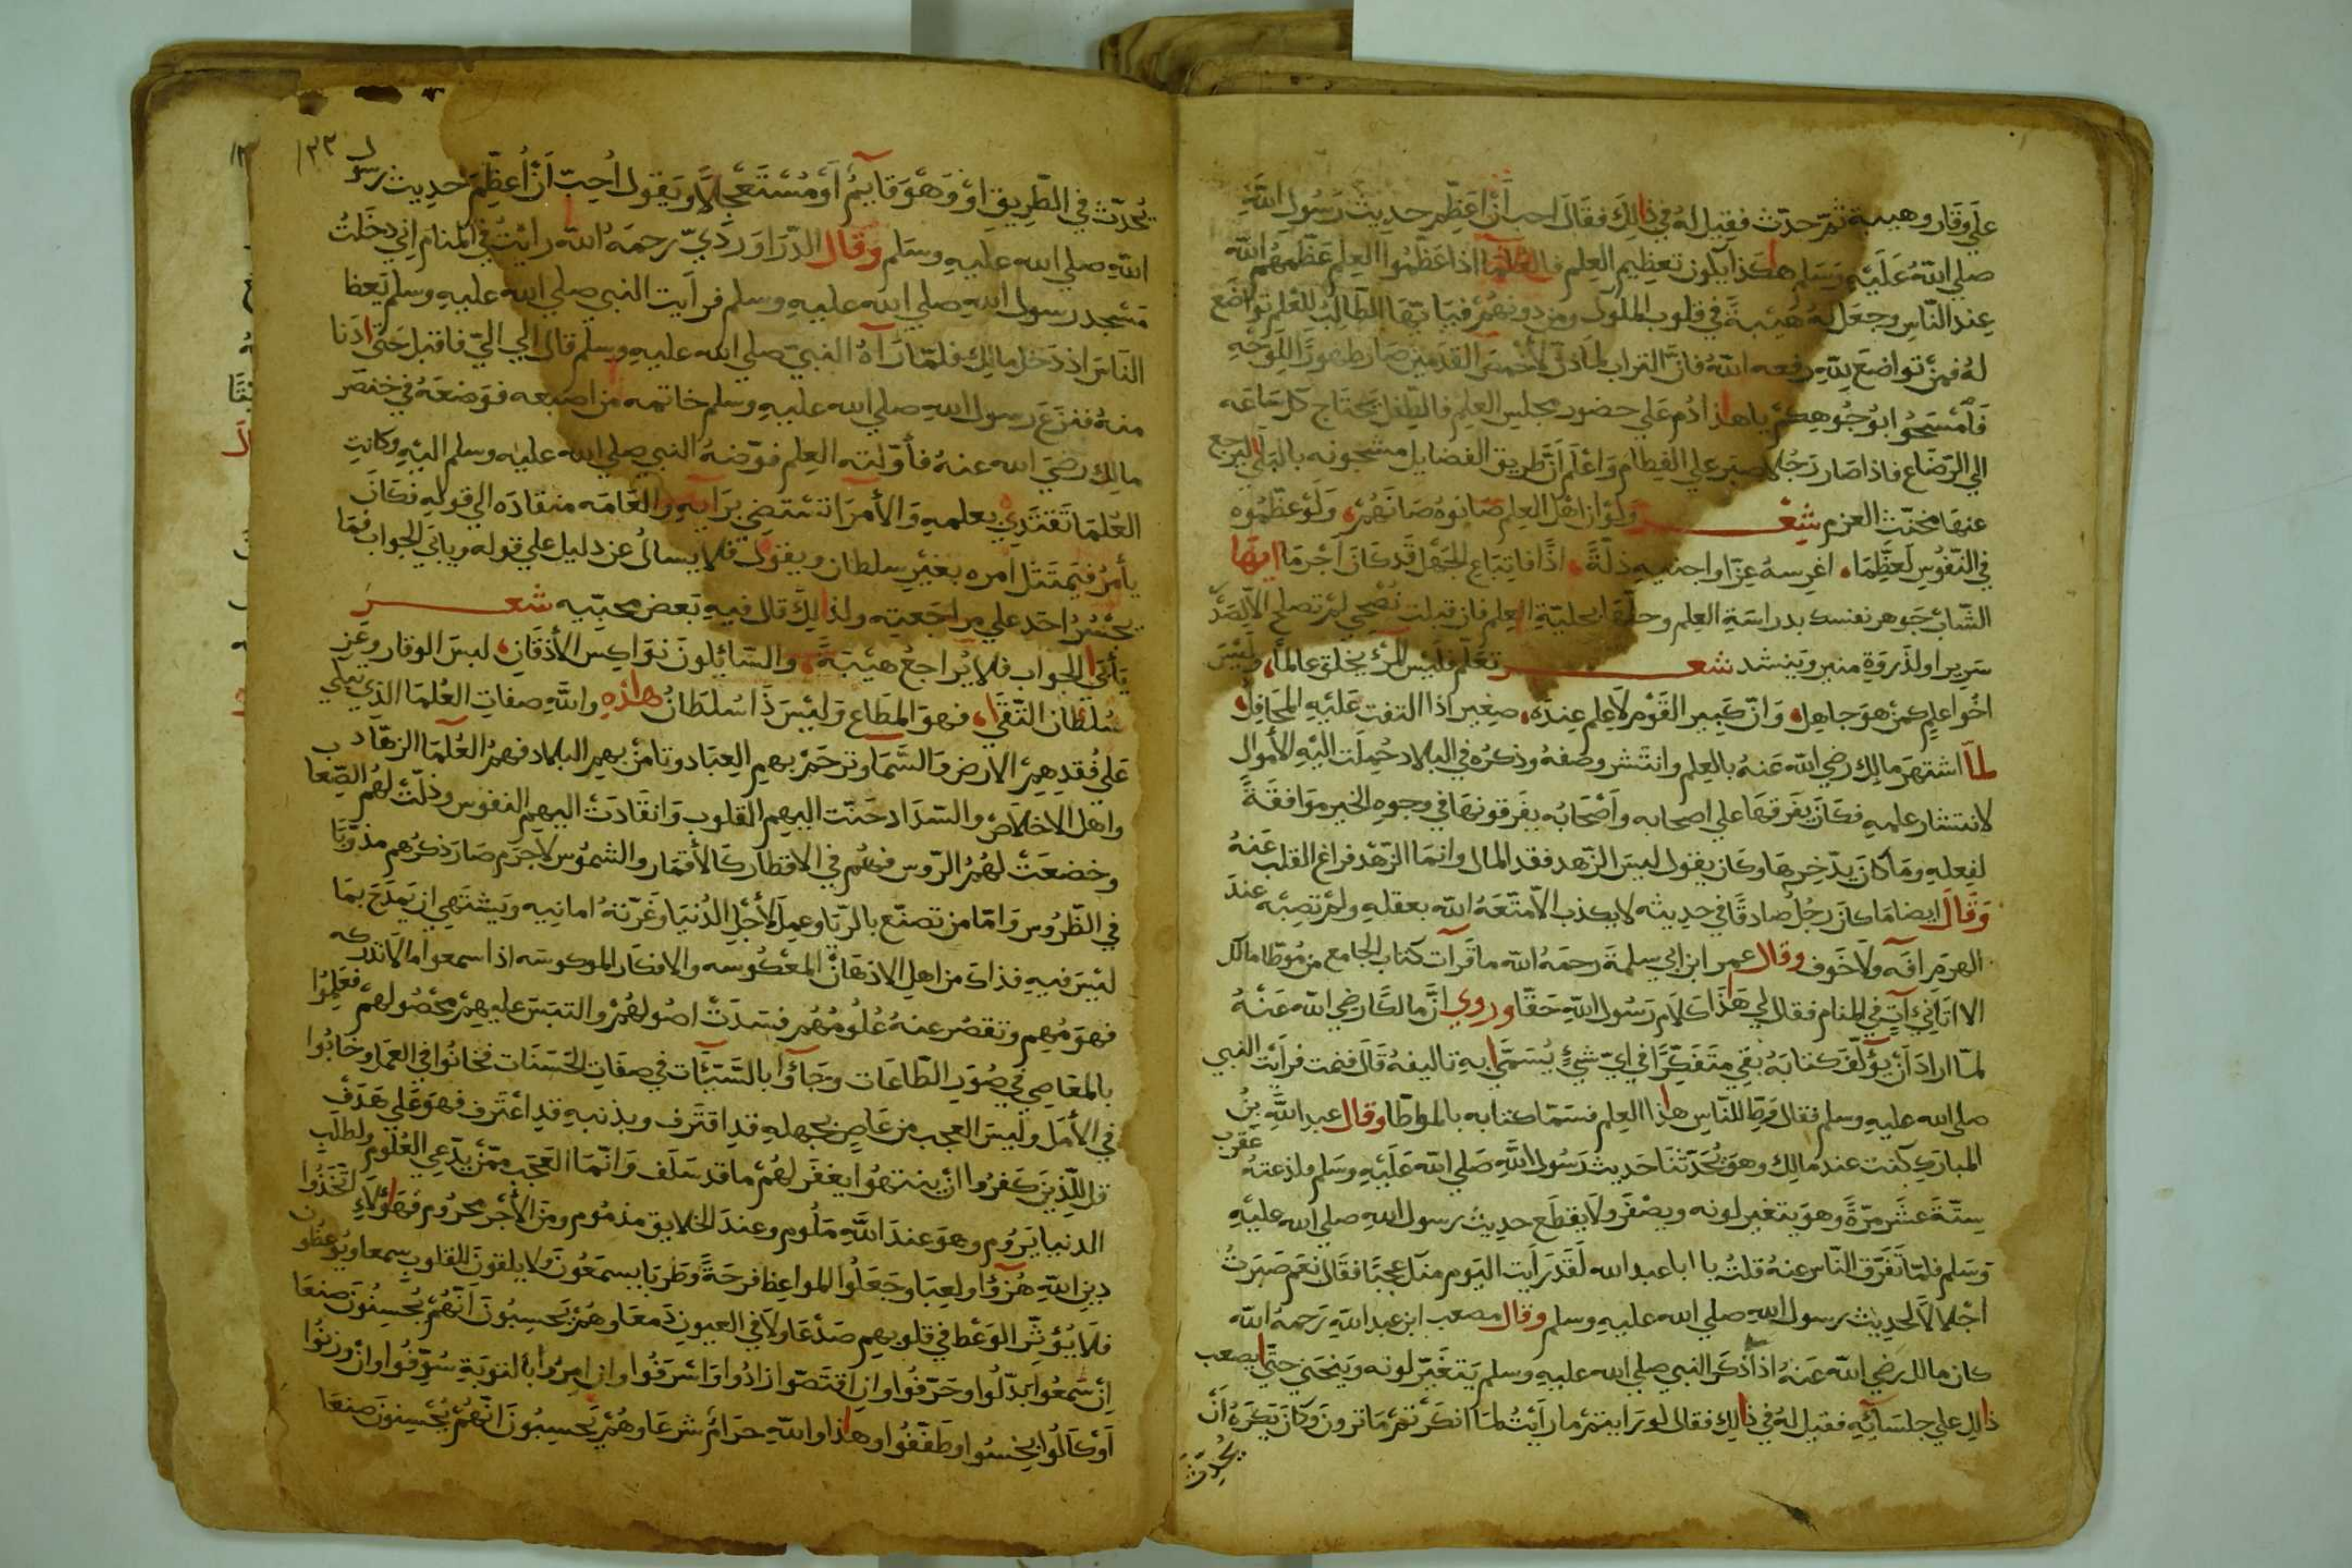 علي وقار وهيبة ثمّ حدّث فقيل له في ذالك فقال احب أن أعظم حديث رسول الله
صلي الله عليه وسلم هكذا يكون تعظيم العلم فالعلما اذا عظموا العلم عظمهم الله
عند الناس وجعل له هيبة في قلوب الملوك ومن دونهم فيا ايّها الطالب للعلم تواضع
له فمن تواضع لله رفعه الله فان التراب لما ذل لأخمص القدمين صار طهورا للوجه
فامسحوا بوجوهكم يا هذا دم علي حضور مجلس العلم فالطفل يحتاج كل ساعة
الي الرضاع فاذا صار رجلا صبر علي الفطام واعلم أنّ طريق الفضايل مشحونه بالبلي ليرجع
عنها مخنّث العزم شعر ولو ان اهل العلم صانوه صانهم، ولو عظّموه
في النّفوس لعظّما، اغرسه عزّا واجنيه ذلّة، اذًا فاتباع الجهل قد كان أجزما ايها
الشاب جوهر نفسك بدراسة العلم وحلّها بحلية العلم فان قبلت نصحي لم تصلح الا لصدر
سرير او لذروة منبر وينشد شعر تعلّم فليس المرء يخلق عالما، وليس
اخوا علم كمن هو جاهل، وانّ كبير القوم لا علم عنده، صغير اذا التفت عليه المحافل،
لمّا اشتهر مالك رضي الله عنه بالعلم وانتشر وصفه وذكره في البلاد حملت اليه الأموال
لانتشار علمه فكان يفرقها علي اصحابه وأصحابه يفرقونها في وجوه الخير موافقة
لفعله وما كان يدّخرها وكان يقول ليس الزّهد فقد المال وانما الزهد فراغ القلب عنه
وقال ايضا ما كان رجل صادقا في حديثه لا يكذب الا متّعه الله بعقله ولم تصبه عند
الهرم افه ولا خوف وقال عمر ابن ابي سلمة رحمه الله ما قرات كتاب الجامع من موطا مالك
الا اتاني آت في المنام فقال لي هذا كلام رسول الله حقا وروي انّ مالكا رضي الله عنه
لمّا اراد أن يؤلّف كتابه بقي متفكّرا في ايّ شيءٍ يُسمّي به تاليفه قال فنمت فرأيت النبي
صلي الله عليه وسلم فقال وطّ للنّاس هذا العلم فسمّا كتابه بالموطّا وقال عبد الله بن
المبارك كنت عند مالك وهو يُحدّثنا حديث رسول الله صلي الله عليه وسلم فلدغته عقرب
ستّة عشر مرّة وهو يتغير لونه ويصفر ولا يقطع حديث رسول الله صلي الله عليه
وسلم فلمّا تفرّق النّاس عنه قلت يا ابا عبد الله لقد رأيت اليوم منك عجبًا فقال نعم صبرت
اجلالا لحديث رسول الله صلي الله عليه وسلم وقال مصعب ابن عبد الله رحمه الله
كان مالك رضي الله عنه اذا ذكر النبي صلي الله عليه وسلم يتغيّر لونه وينحني حتّي يصعب
ذالك علي جلسائه فقيل له في ذالك فقال لو رايتم ما رأيت لما انكرتم ما ترون وكان يكره أن
يُحدّث
١٣٣
يُحدّث في الطّريق أو وهو قايم أو مستعجلا ويقول أحبّ أن أعظّم حديث رسول
الله صلي الله عليه وسلم وقال الدّراورديّ رحمه الله رايت في المنام اني دخلت
مسجد رسول الله صلي الله عليه وسلم فرايت النبي صلي الله عليه وسلم يعظ
النّاس اذ دخل مالك فلمّا رآه النبيّ صلي الله عليه وسلم قال الي اليّ فاقبل حتّي ادنا
منه فنزع رسول الله صلي الله عليه وسلم خاتمه من اصبعه فوضعه في خنصر
مالك رضي الله عنه فأوّلته العلم فوّضه النبي صلي الله عليه وسلم اليه وكانت
العلما تقتدي بعلمه والأمرا تستضي برايه والعامه منقاده الي قوله فكان
يأمر فيمتثل امره بغير سلطان ويقول فلا يسال عن دليل علي قوله وياتي الجواب فما
يجسر احد علي مراجعته ولذالك قال فيه بعض محبّيه شعر
يأتي الجواب فلا يراجع هيبة، والسّايلون نواكس الأذقان، لبس الوقار وعز
سلطان التّقي، فهو المطاع وليس ذا سلطان هاذه والله صفات العلما الذي تبكي
علي فقدهم الارض والسّما وترحم بهم العباد وتامن بهم البلاد فهم العُلما الزهّاد
واهل الاخلاص والسّداد حنّت اليهم القلوب وانقادت اليهم النفوس وذلّت لهم الصّعاب
وخضعت لهم الرّوس فهم في الاقطار كالأقمار والشموس لا جرم صار ذكرهم مذوّبًا
في الطّروس وامّا من تصنّع بالرّيا وعمل لأجل الدُنيا وغرّته امانيه ويشتهي ان يمدح بما
ليس فيه فذاك من اهل الاذهان المعكوسه والافكار الموكوسه اذا سمعوا ما لا تدركه
فهومهم وتقصر عنه علومهم فسدت اصولهم والتبس عليهم محصولهم فعلموا
بالمعاصي في صور الطّاعات وجآؤا بالسّيّئات في صفات الحسنات فخانوا في العمل وخابوا
في الأمل وليس العجب من عاصٍ بجهله قد اقترف وبذنبه قد اعترف فهو علي هدف
قل للّذين كفروا ان ينتهوا يغفر لهم ما قد سلف وانّما العجب ممّن يدّعي العُلوم ولطلب
الدنيا يروم وهو عند الله ملوم وعند الخلايق مذموم ومن الأجر محروم فهؤلاء اتّخذوا
دين الله هزؤًا ولعبا وجعلوا المواعظ فرحةً وطربا يسمعون ولا يلقون للقلوب سمعا ويوعظون
فلا يُؤثّر الوعظ في قلوبهم صدعا ولا في العيون دمعا وهم يحسبون أنّهم يُحسنون صنعا
ان سمعوا بدّلوا وحرّفوا وان اقتصّوا زادوا واشرفوا وان امروا بالتوبة سوّفوا وان وزنوا
أو كالوا بخسوا وطفّفوا وهاذا والله حرام شرعا وهم يحسبون انّهم يُحسنون صنعا